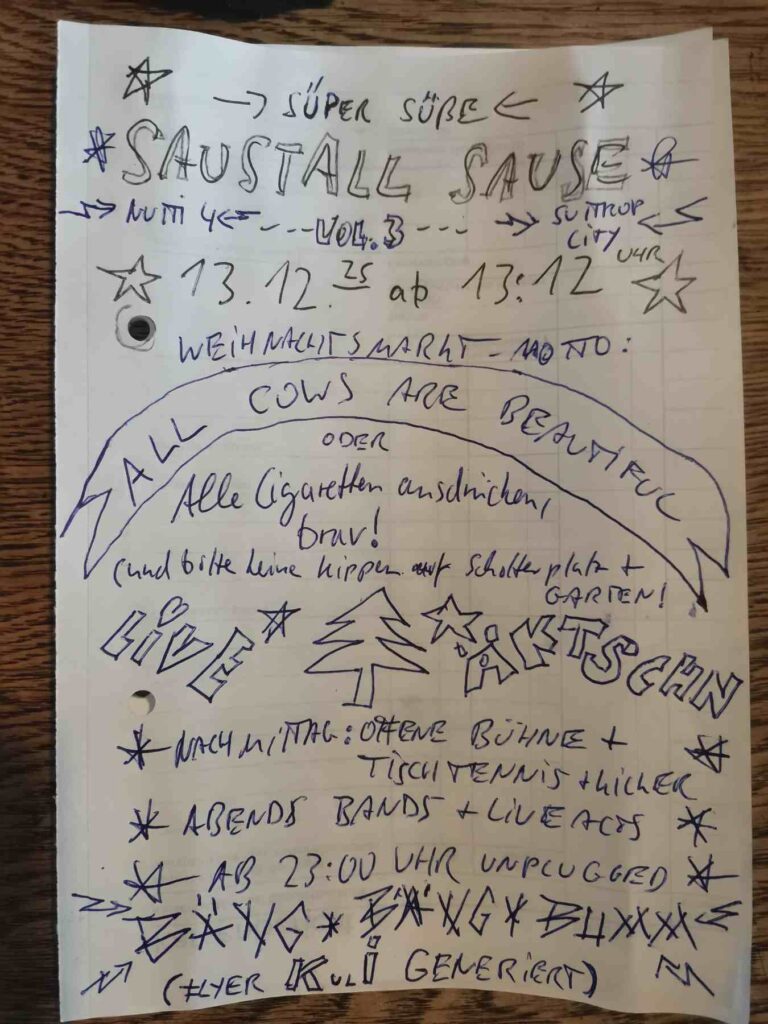 SÜPER SÜßE
SAUSTALL SAUSE
NUTTI 4 ---VOL.3--- SUTTROP CITY
13.12.25 ab 13:12 UHR
WEIHNACHTSMARKT-MOTTO:
ALL COWS ARE BEAUTIFUL
ODER
Alle Cigaretten ausdrücken,
brav!
(und bitte keine Kippen auf Schotterplatz +
GARTEN!
LIVE ÄKTSCHN
NACHMITTAG: OFFENE BÜHNE +
TISCHTENNIS + KICKER
ABENDS BANDS + LIVE ACTS
AB 23:00 UHR UNPLUGGED
BÄNG * BÄNG * BUMM
(FLYER KULI GENERIERT)